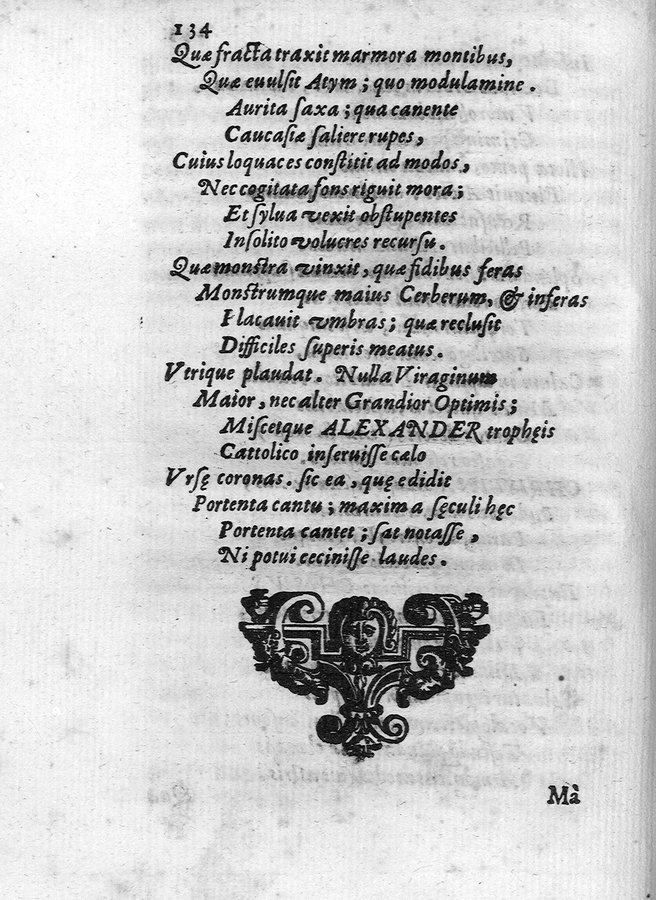 134
Quæ fracta traxit marmora montibus,
Quæ euulsit Atym; quo modulamine.
Aurita saxa; qua canente
Caucasiæ saliere rupes,
Cuius loquaces constitit ad modos,
Nec cogitata fons riguit mora;
Et sylua vexit obstupentes
Insolito volucres recursu.
Quæ monstra vinxit, quæ fidibus feras
Monstrumque maius Cerberum, & inferas
Placauit vmbras; quæ reclusit
Difficiles superis meatus.
Vtrique plaudat. Nulla Viraginum
Maior, nec alter Grandior Optimis;
Miscetque ALEXANDER trophęis
Cattolico inseruisse cælo
Vrsę coronas. sic ea, quę edidit
Portenta cantu; maxima sęculi hęc
Portenta cantet; sat notasse,
Ni potui cecinisse laudes.
Mà